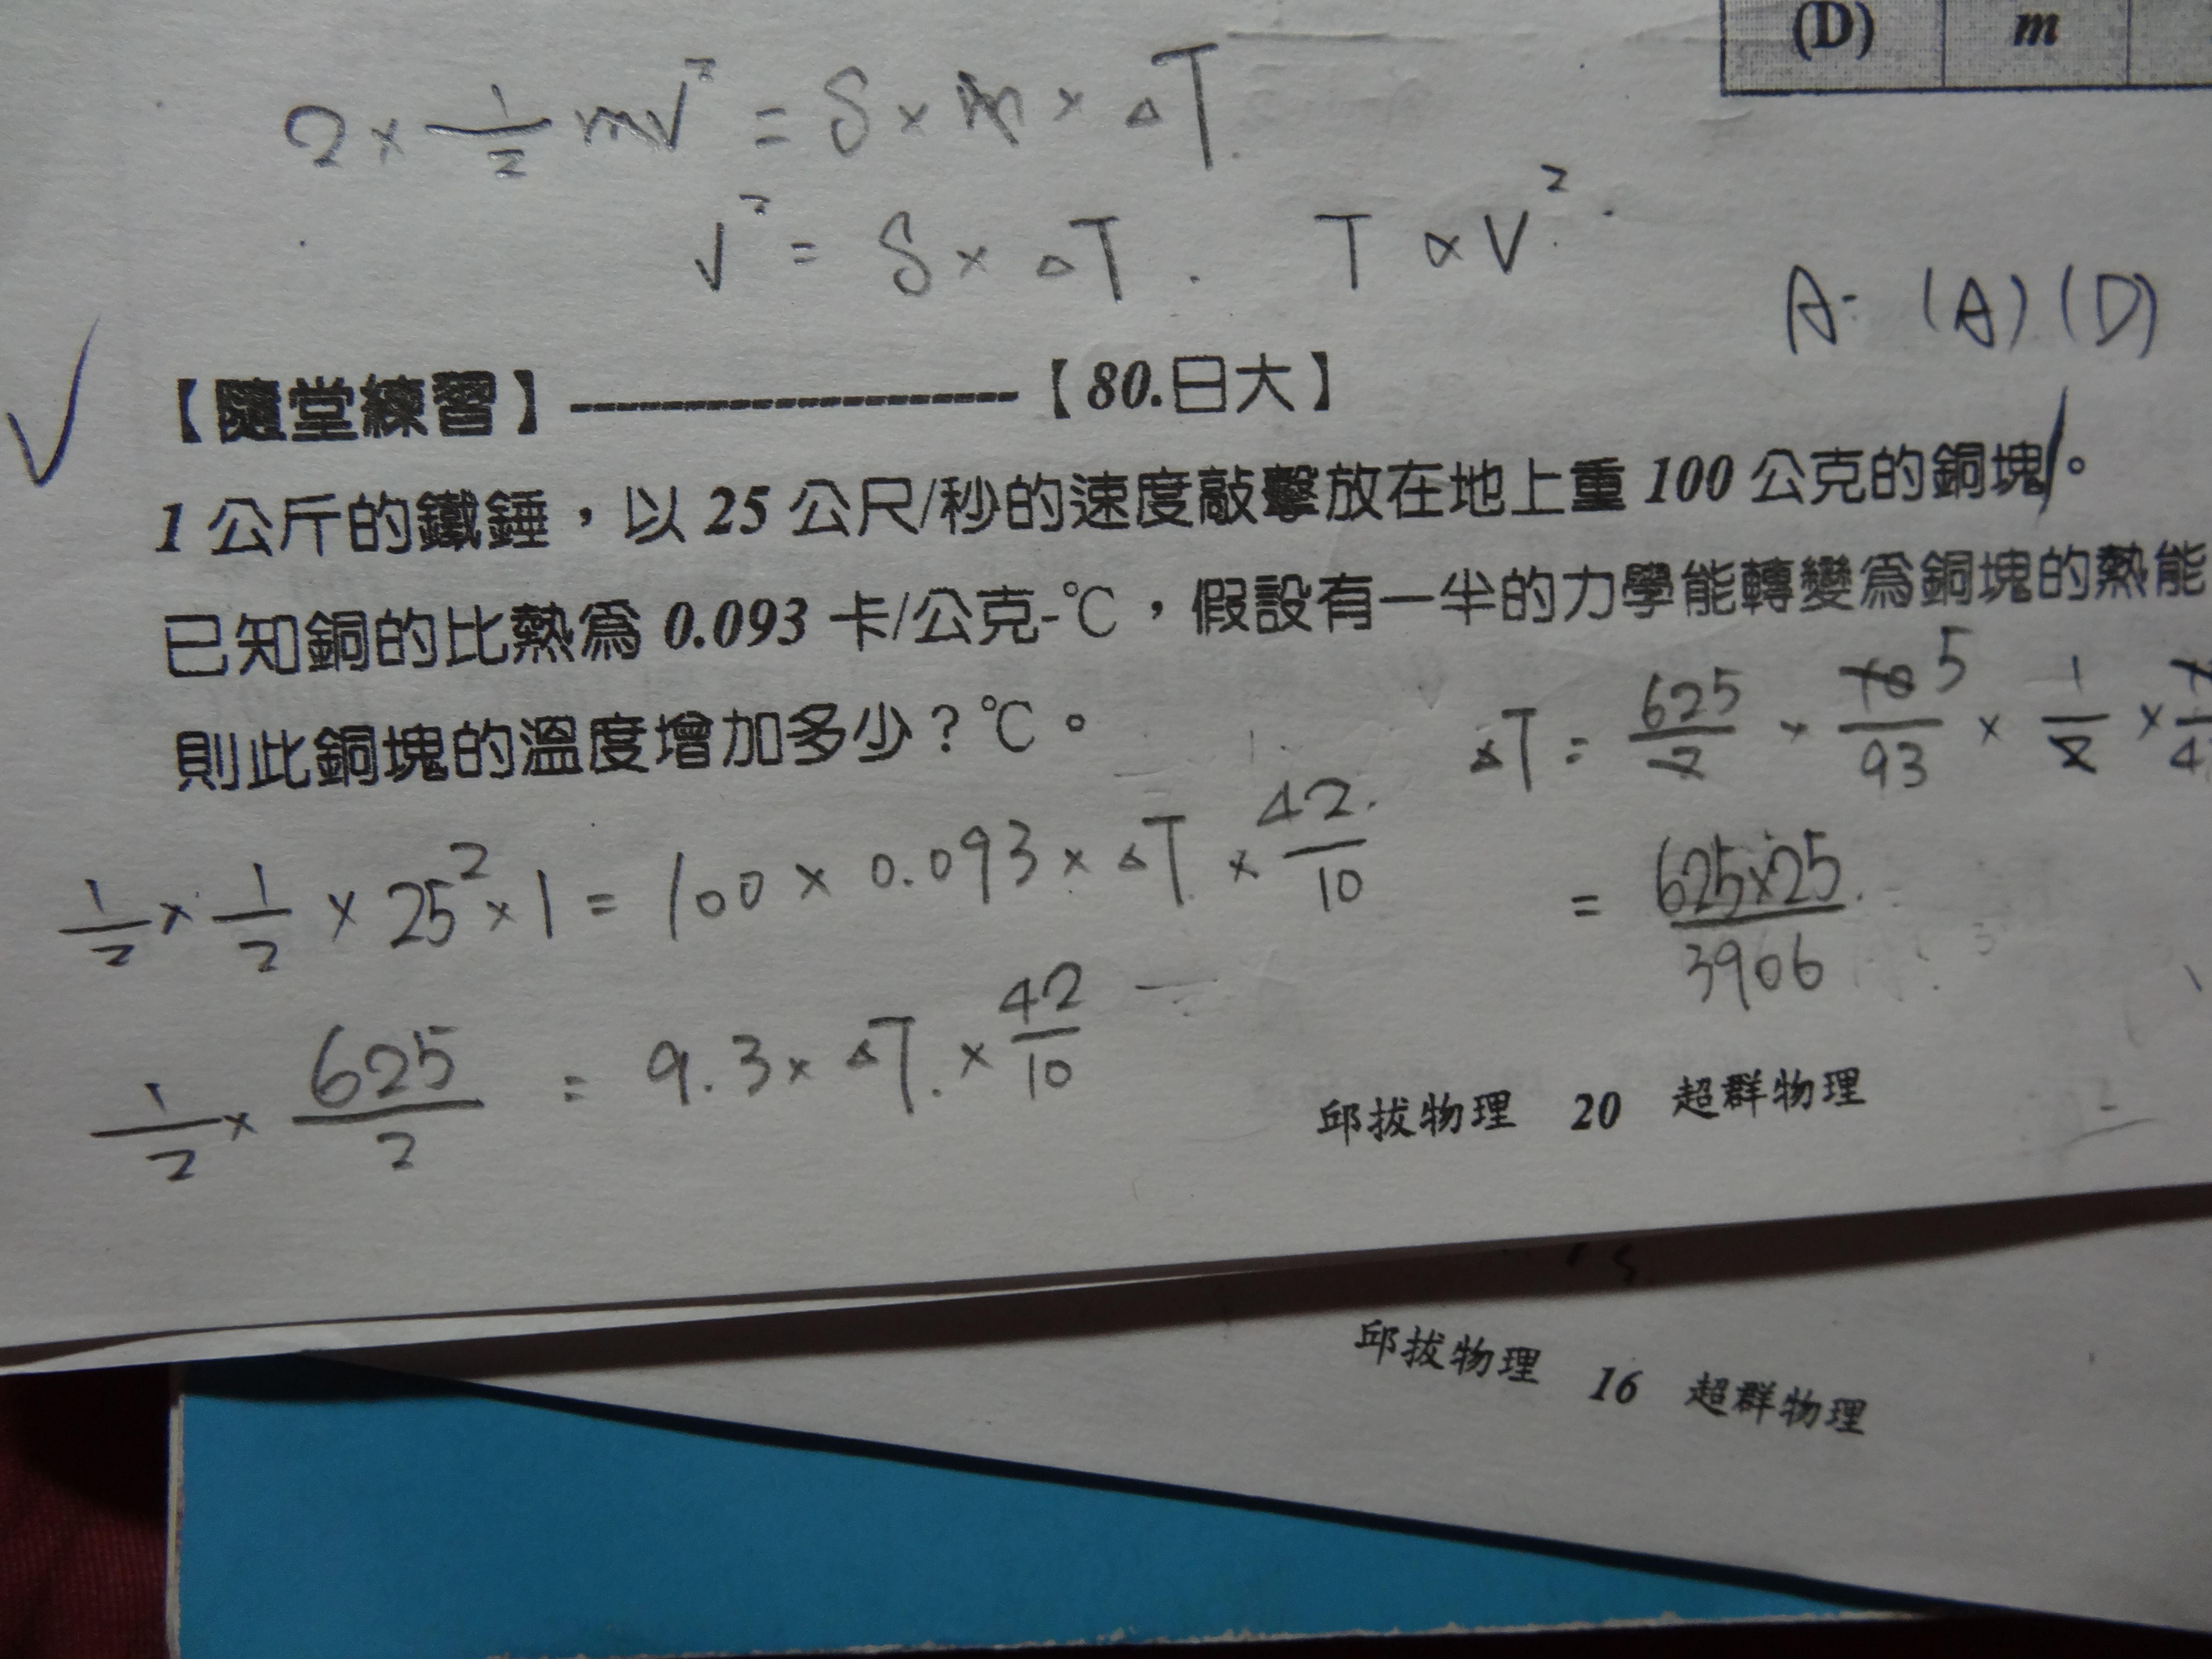 (D) m
2 × 1/2 mv² = S × m × △T.
v² = S × △T. T ∝ V².
A: (A) (D)
【隨堂練習】--------------------【80.日大】
1 公斤的鐵錘，以 25 公尺/秒的速度敲擊放在地上重 100 公克的銅塊。
已知銅的比熱為 0.093 卡/公克-℃，假設有一半的力學能轉變為銅塊的熱能
則此銅塊的溫度增加多少？℃。
△T = 625/2 × 10 5/93 × 1/2 ×
1/2 × 1/2 × 25² × 1 = 100 × 0.093 × △T × 42/10
= 625×25/3906
1/2 × 625/2 = 9.3 × △T. × 42/10
邱拔物理 20 超群物理
邱拔物理 16 超群物理